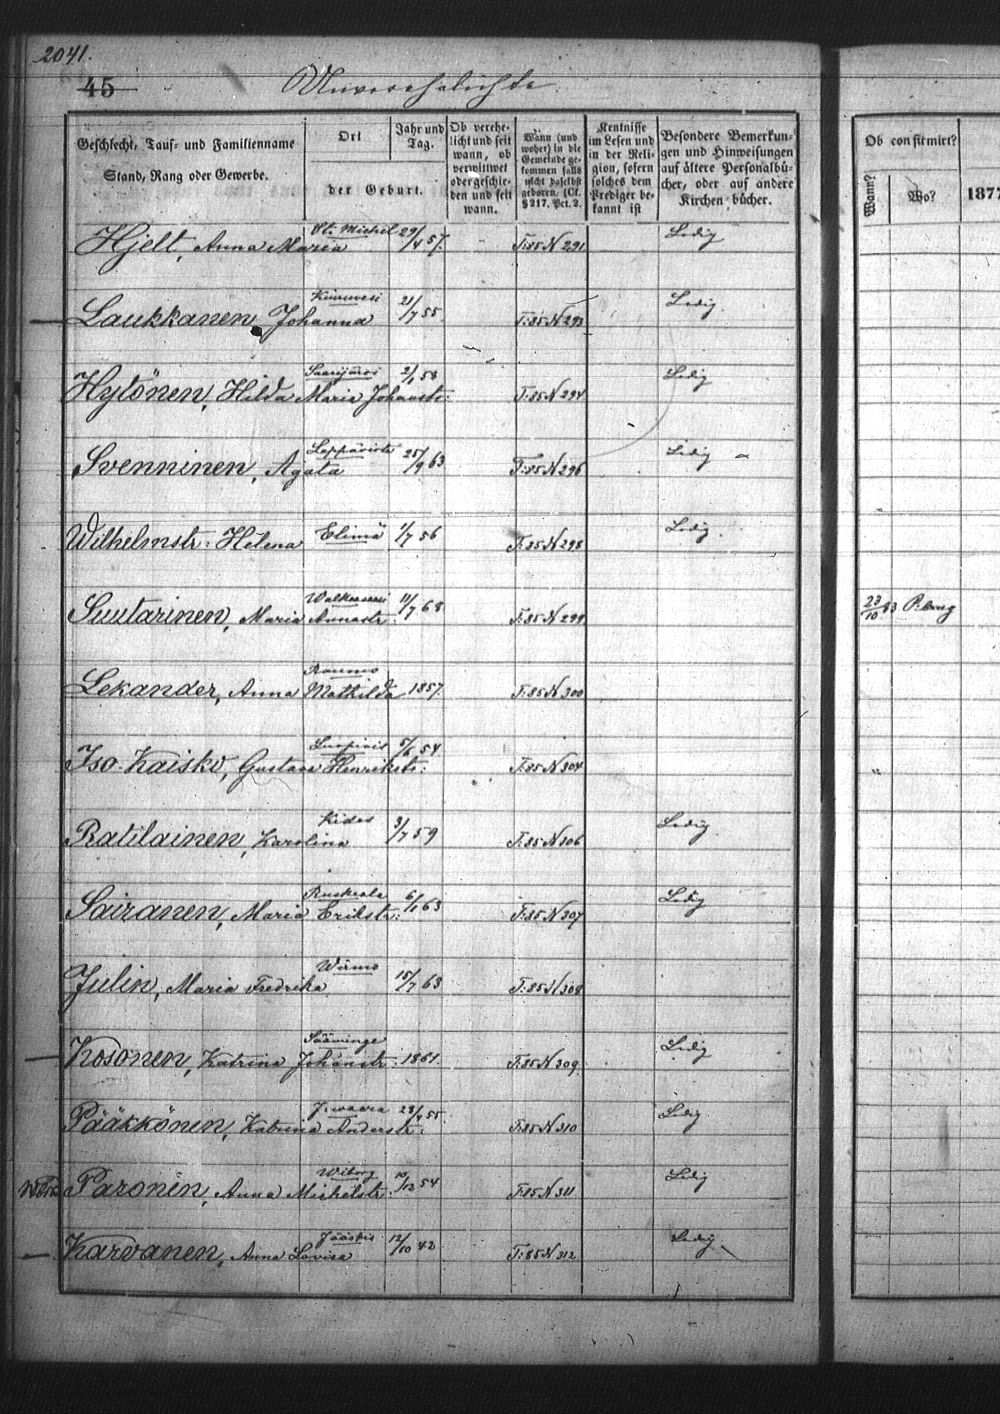 2041.
45
Unverehelichte
Geschlecht, Tauf- und Familienname
Stand, Rang oder Gewerbe.
Ort
Jahr und Tag.
der Geburt.
Ob verehelicht und seit wann, ob verwittwet oder geschieden und seit wann.
Wann (und woher) in die Gemeinde gekommen falls nicht daselbst geboren. (Cf. § 217. Pct. 2.
Kentnisse im Lesen und in der Religion, sofern solches dem Prediger bekannt ist
Besondere Bemerkungen und Hinweisungen auf ältere Personalbücher, oder auf andere Kirchenbücher.
Ob confirmirt?
Wann?
Wo?
1877
Hjelt, Anna Maria St. Michel 29/4 57. T:85 N 291 Ledig
Laukkanen, Johanna Kiuruvesi 21/7 55 T:85 N 293 Ledig
Hytönen, Hilda Maria Johanstr: Saarijärvi 2/1 58 T:85 N 294 Ledig
Svenninen, Agata 25/9 63 T:85 N 296 Ledig
Wilhelmstr: Helena Elimä 1/7 56 T:85 N 298 Ledig
Suutarinen, Maria Annastr: Walkeasaari 11/7 68 T:85 N 299 23/10 83 P.burg
Lekander, Anna Mathilda Raumo 1857. T:85 N 300
Iso-Kaisko, Gustava Henrikstr: 5/6 54 T:85 N 304
Ratilainen, Karolina Kides 3/7 59 T:85 N 306 Ledig
Sairanen, Maria Erikstr: Ruskeala 6/1 63 T:85 N 307 Ledig
Julin, Maria Fredrika Wirmo 15/7 63 T:85 N 308
Kosonen, Katrina Johanstr: Sääminge 1861. T:85 N 309 Ledig
Pääkkönen, Katrina Anderstr: 23/4 55 T:85 N 310 Ledig
Paronen, Anna Michelstr: Wiborg 10/12 54 T:85 N 311 Ledig
Karvanen, Anna Lovisa Jääskis 12/10 42 T:85 N 312 Ledig